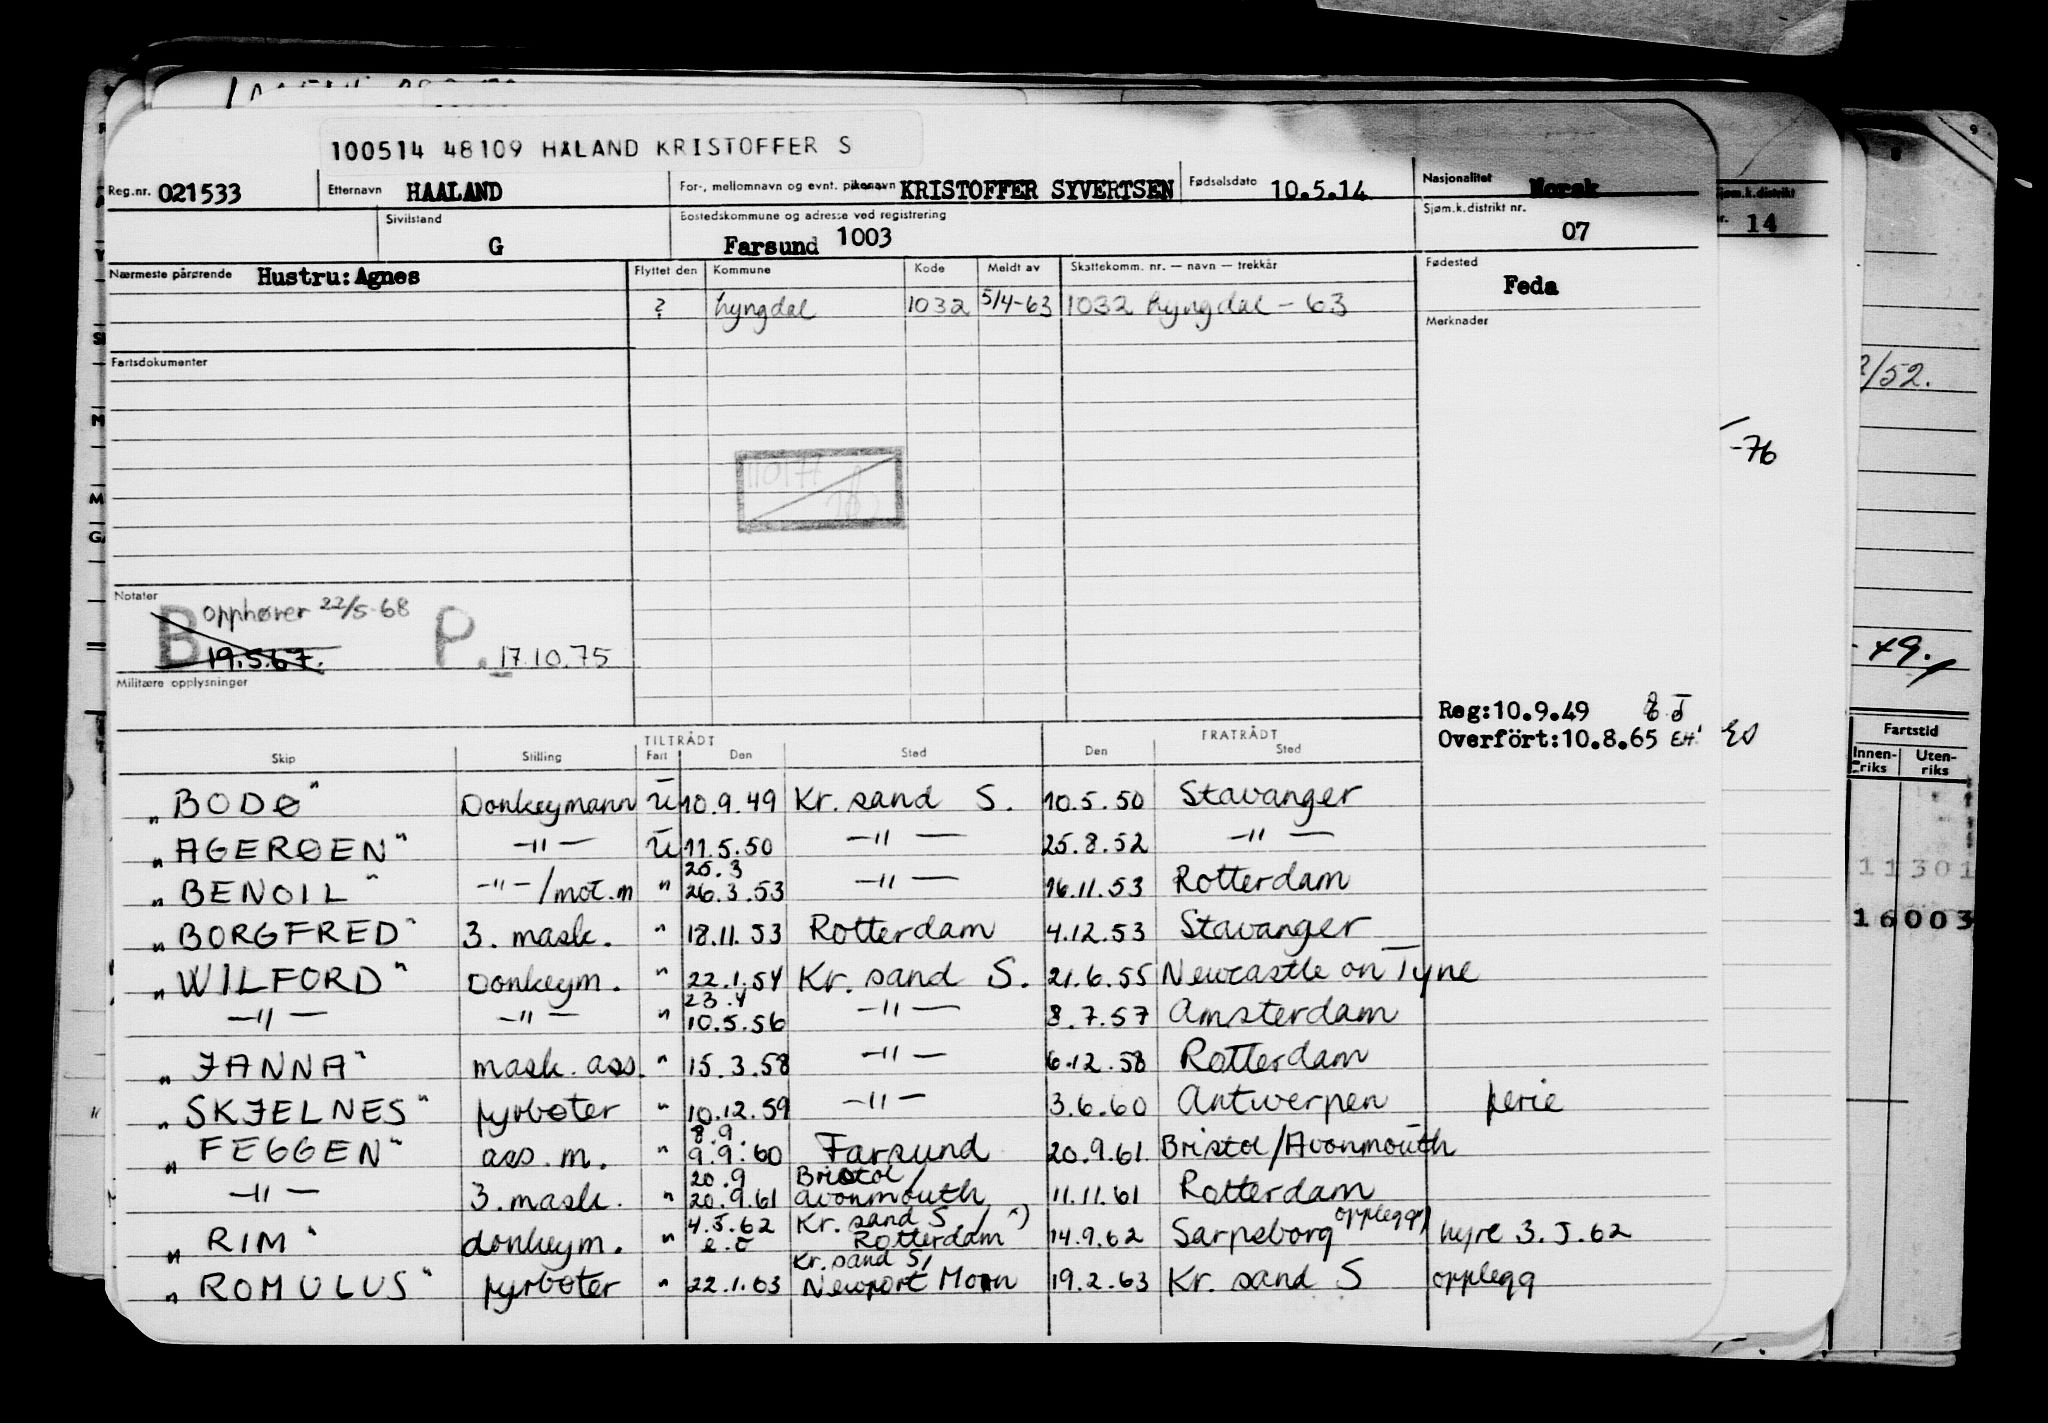 100514 48109 HALAND KRISTOFFER S
Reg.nr. 021533 Etternavn HAALAND For-, mellomnavn og evnt. pikenavn KRISTOFFER SYVERTSEN Fødselsdato 10.5.14 Nasjonalitet Norsk
Sivilstand G Bostedskommune og adresse ved registrering Farsund 1003 Sjøm.k.distrikt nr. 07
Sjøm.k.distrikt nr. 14
Nærmeste pårørende Hustru: Agnes Flyttet den Kommune Kode Meldt av Skattekomm. nr. — navn — trekkår Fødested Feda
? Lyngdal 1032 5/4-63 1032 Lyngdal - 63
Merknader
Fartsdokumenter
/52.
-76
110177
Notater
B opphører 22/5-68 P. 17.10.75
19.5.67.
- 49.
Militære opplysninger
Reg:10.9.49
Overfört:10.8.65 EH.
ES
Fartstid
Innenriks Utenriks
TILTRÅDT FRATRÅDT
Skip Stilling Fart Den Sted Den Sted
"BODØ" Donkeymann U 10.9.49 Kr. sand S. 10.5.50 Stavanger
"AGERØEN" -"- U 11.5.50 -"- 25.8.52 -"-
"BENOIL" -"-/mot.m " 25.3 26.3.53 -"- 16.11.53 Rotterdam
"BORGFRED" 3. mask. " 18.11.53 Rotterdam 4.12.53 Stavanger
"WILFORD" Donkeym. " 22.1.54 Kr. sand S. 21.6.55 Newcastle on Tyne
-"- -"- " 23.4 10.5.56 -"- 8.7.57 Amsterdam
"JANNA" mask. ass. " 15.3.58 -"- 6.12.58 Rotterdam
"SKJELNES" fyrbøter " 10.12.59 -"- 3.6.60 Antwerpen ferie
"FEGGEN" ass. m. " 8.9. 9.9.60 Farsund 20.9.61 Bristol/Avonmouth
-"- 3. mask. " 20.9 20.9.61 Bristol/Avonmouth 11.11.61 Rotterdam
"RIM" donkeym. " 4.5.62 e.o Kr. sand S / Rotterdam 14.9.62 Sarpsborg opplegg hyre 3.5.62
"ROMULUS" fyrbøter " 22.1.63 Kr. sand S/ Newport Mon 19.2.63 Kr. sand S opplegg
11301
16003